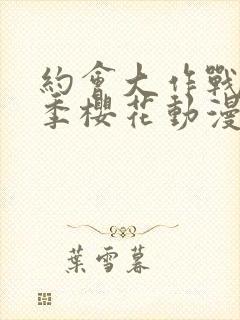 約會大作戰
季櫻花動漫
葉雪暮